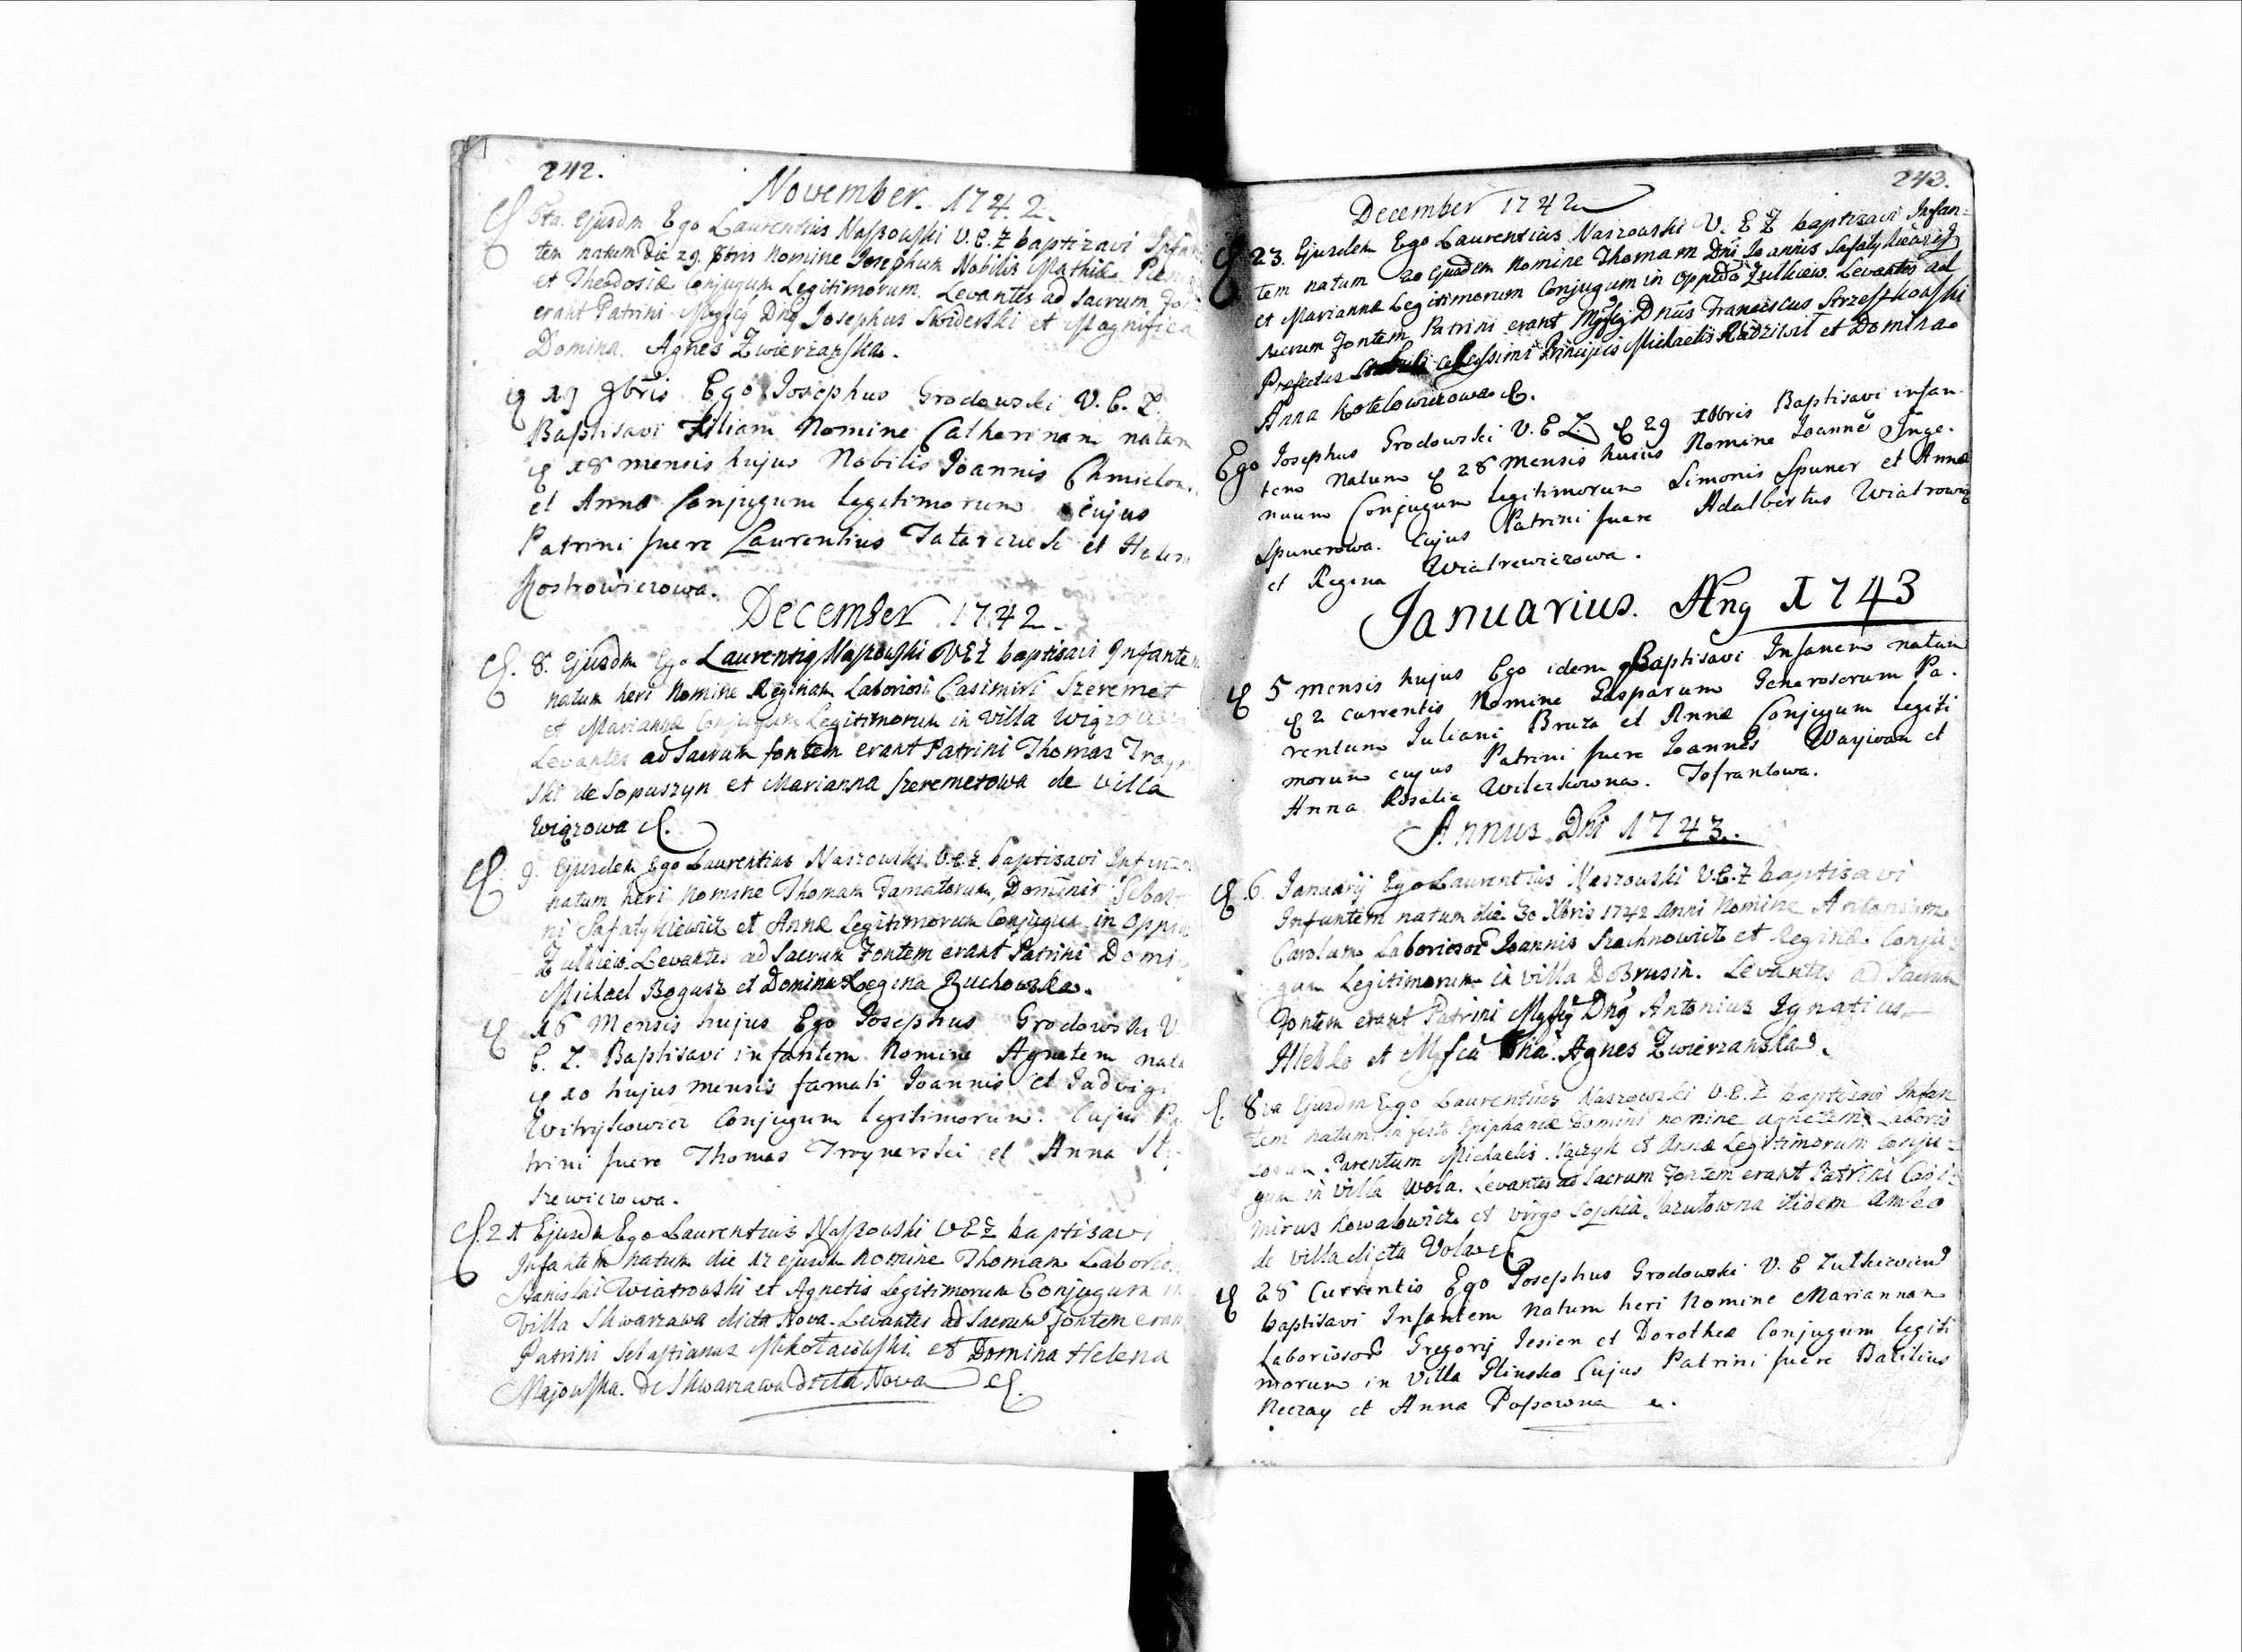 242.
November. 1742.
5ta. Ejusdm Ego Laurentius Naszowski V.E.Z baptizavi Infan
tem natum Die 29. 8bris Nomine Josephum Nobilis Mathiæ
et Theodosiæ Conjugum Legitimorum. Levantes ad Sacrum Fon
erant Patrini Mgfcg Dng Josephus Swiderski et Magnifica
Domina. Agnes Zwierzanska.
19 9bris Ego Josephus Grodowski V. E. Z.
Baptisavi Filiam Nomine Catherinam natam
18 mensis hujus Nobilis Joannis
et Annæ Conjugum legitimorum cujus
Patrini fuere Laurentius et Helen
Kostrowiczowa.
December 1742.
8. Ejusdm Ego Laurentig Naszowski VEZ baptisavi Infantem
natum heri Nomine Reginam Laboriosi Casimiri Szeremet
et Mariannæ Conjugum Legitimorum in Villa
Levantes ad Sacrum fontem erant Patrini Thomas
ski de Sopuszyn et Marianna Szeremetowa de Villa
Wiązowa
9. Ejusdem Ego Laurentius Naszowski V.E.Z. baptisavi
natum heri Nomine Thomam Famatorum, Dominis
ni Safatykiewicz et Annæ Legitimorum Conjugum in
Zulkiew. Levantes ad Sacrum Fontem erant Patrini
Michael Bogusz et Domina Regina Zuchowska.
16 Mensis hujus Ego Josephus Grodowski V.
E. Z. Baptisavi infantem Nomine Agnetem nata
10 hujus mensis famati Joannis et
Witrykowicz Conjugum legitimorum. Cujus Pa
trini fuere Thomas Troynarski et Anna
szewiczowa.
21 Ejusdm Ego Laurentius Naszowski VEZ baptisavi
Infantem natum die 17 ejusdm Nomine Thomam
Stanislai Wiatrowski et Agnetis Legitimorum Conjugum in
Villa Skwarzawa dicta Nova. Levantes ad Sacrum fontem eran
Patrini Sebastianus Mikołaiowski et Domina Helena
Majowska. de Skwarzawa dicta Nova
243.
December 1742
23. Ejusdem Ego Laurentius Naszowski V. E Z baptizavi Infan=
tem natum 20 ejusdem Nomine Thomam Dni Joannis
et Mariannæ Legitimorum Conjugum in oppido Zulkiew. Levantes ad
sacrum Fontem Patrini erant Mgfcg Dnus Franciscus
Præfectus Celsissimi Principis Michaelis Radziwil et Domina
Anna Kotelowiczowa
Ego Josephus Grodowski V. E Z. 29 Xbris Baptisavi infan-
tem Natum 28 mensis huius Nomine Joannē Inge.
nuum Conjugum legitimorum Simonis Spuner et Annæ
Spunerowa. Cujus Patrini fuere Adalbertus
et Regina Wiatrewiczowa.
Januarius. Ang 1743
5 mensis hujus Ego idem Baptisavi Infanem natum
2 currentis Nomine Gasparum Generosorum Pa.
rentum Juliani Bruza et Annæ Conjugum legiti
morum cujus Patrini fuere Joannes et
Anna Rosalia
Annus Dhi 1743.
6. Januarij Ego Laurentius Naszowski V.E.Z baptisavi
Infantem natum die 30 Xbris 1742 Anni Nomine Antonium
Carolum Laboriosor Joannis Szachnowicz et Reginæ Conju
gum Legitimorum in villa Dobrusin. Levantes ad Sacrum
Fontem erant Patrini Mgfcg Dng Antonius Ignatius
et Mgfca Dna. Agnes Zwierzanska.
8va Ejusdm Ego Laurentius Naszowski V.E.Z baptizavi Infan
tem natum in festo Epiphaniæ Domini nomine Agnetem Laborio
sorum Parentum Michaelis et Annæ Legitimorum Conju=
gum in villa Wola. Levantes ad Sacrum Fontem erant Patrini Casi=
mirus Kowalowicz et virgo Sophia itidem ambo
de villa dicta Vola
28 Currentis Ego Josephus Grodowski V. E
baptisavi Infantem Natum heri Nomine Mariannam
Laboriosor Gregorij Jesien et Dorotheæ Conjugum legiti
morum in Villa Glinsko Cujus Patrini fuere Bazilius
et Anna